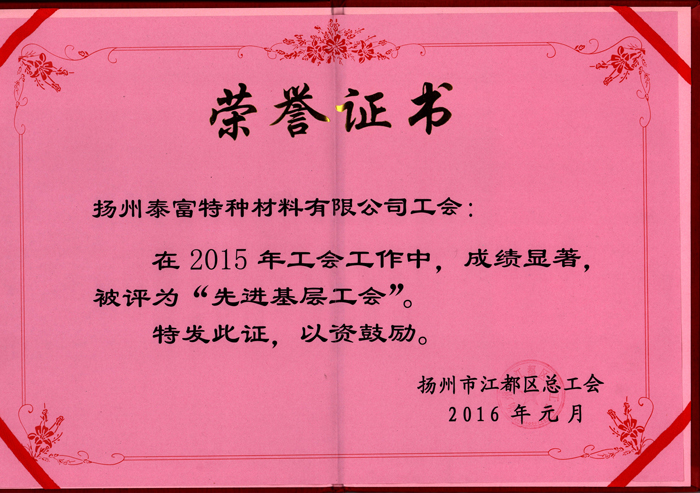 荣誉证书
扬州泰富特种材料有限公司工会：
在 2015 年工会工作中，成绩显著，
被评为“先进基层工会”。
特发此证，以资鼓励。
扬州市江都区总工会
2016 年元月